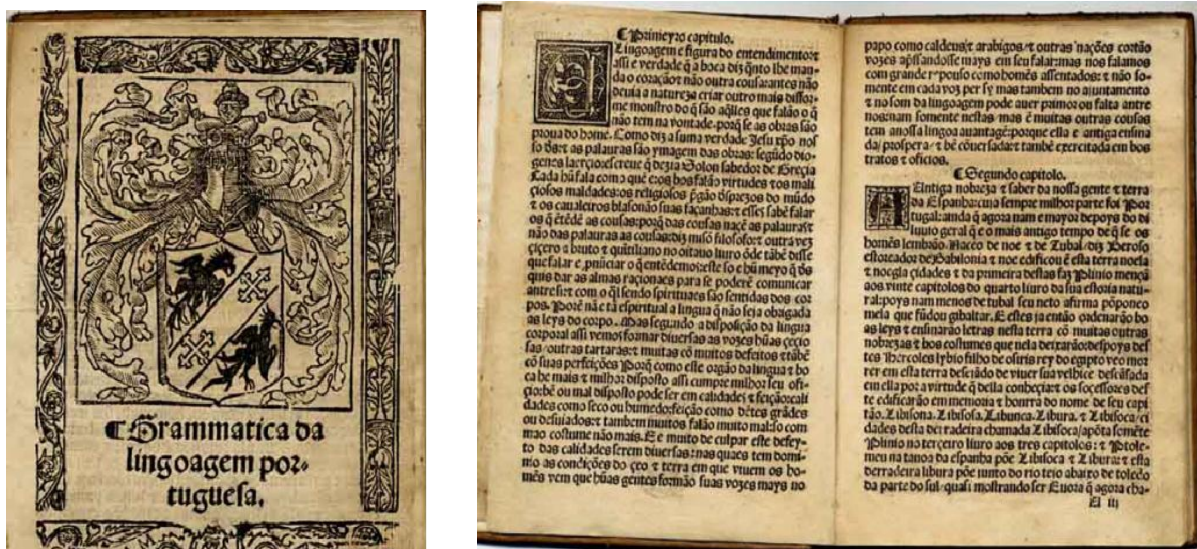 Grammatica da
lingoagem por-
tuguesa.
Primeyro capitulo.
Lingoagem e figura do entendimento: ⁊
assi e verdade q̃ a boca diz q̃nto lhe man-
da o coração ⁊ não outra cousa: antes não
deuia a natureza criar outro mais diffor-
me monstro do q̃ são aq̃lles que falão o q̃
não tem na vontade. porq̃ se as obras são
proua do home. Como diz a suma verdade Jesu xp̃o nos
so d̃s: ⁊ as palauras são ymagem das obras: segũdo dio-
genes laerçio: escreue q̃ dezia Solon sabedor de Greçia
Cada hũ fala como quẽ e: os bos falão virtudes ⁊ os mali
çiosos maldades: os religiosos p̃gão d̃sprezos do mũdo
⁊ os caualeiros blasonão suas façanhas: ⁊ esses sabẽ falar
os q̃ ẽtẽdẽ as cousas: porq̃ das cousas naçẽ as palauras ⁊
não das palauras as cousas: diz misõ filosofo: ⁊ outra vez
çiçero a bruto ⁊ quĩtiliano no oitauo liuro õde tãbẽ disse
que falar e p̃nũciar o q̃ entẽdemos: este so e hũ meyo q̃ d̃s
quis dar as almas raçionaes para se poderẽ comunicar
antre si: ⁊ com o q̃l sendo spirituaes são sentidas dos cor
pos. Porẽ nã e tã espiritual a lingua q̃ não seja obrigada
as leys do corpo. Mas segundo a disposição da lingua
corporal assi vemos formar diuersas as vozes hũas çeçio
sas/outras tartaras: ⁊ muitas cõ muitos defeitos ⁊ tãbẽ
cõ suas perfeições Porq̃ como este orgão da lingua ⁊ bo
ca he mais ⁊ milhor disposto assi cumpre milhor seu ofi-
çio: bẽ ou mal disposto pode ser em calidades ⁊ feição: cali
dades como seco ou humedo: feição como dẽtes grãdes
ou desuiados: ⁊ tambem muitos falão muito mal so com
mao costume não mais. E e muito de culpar este defey-
to das calidades serem diuersas: nas quaes tem domi-
nio as condições do çeo ⁊ terra em que viuem os ho-
mẽs vem que hũas gentes formão suas vozes mays no
papo como caldeus: ⁊ arabigos/⁊ outras nações cortão
vozes ap̃ssandosse mays em seu falar: mas nos falamos
com grande repouso como homẽs assentados: ⁊ não so-
mente em cada voz per sy mas tambem no ajuntamento
⁊ no som da lingoagem pode auer primor ou falta antre
nos: nam somente nestas mas ẽ muitas outras cousas
tem a nossa lingoa auantagẽ: porque ella e antiga ensina
da/prospera/⁊ bẽ cõuersada: ⁊ tambẽ exercitada em bos
tratos ⁊ ofiçios.
Segundo capitolo.
Antiga nobreza ⁊ saber da nossa gente ⁊ terra
da Espanha: cuja sempre milhor parte foi Por
tugal: ainda q̃ agora nam e mayor depoys do di
luuio geral q̃ e o mais antigo tempo de q̃ se os
homẽs lembrão. Naceo de noe ⁊ de Tubal/diz Beroso
estoreador de Babilonia ⁊ noe edificou ẽ esta terra noela
⁊ noegla çidades ⁊ da primeira destas faz Plinio mençã
aos vinte capitolos do quarto liuro da sua estoria natu-
ral: poys nam menos de tubal seu neto afirma põponeo
mela que fũdou gibaltar. E estes ja então ordenarão bo
as leys ⁊ ensinarão letras nesta terra cõ muitas outras
nobrezas ⁊ bos costumes que nela deixarão: despoys des
tes Hercoles lybio filho de osiris rey do egipto veo mor
rer em esta terra desejãdo de viuer sua velhiçe descãsada
em ella por a virtude q̃ della conheçia: ⁊ os socessores des
te edificarão em memoria ⁊ honrra do nome de seu capi
tão. Libisona. Libisosa. Libunca. Libura. ⁊ Libisoca/ci
dades desta derradeira chamada Libisoca/apõta somẽte
Plinio no terçeiro liuro aos tres capitolos: ⁊ Ptole-
meu na tauoa da espanha põe Libisoca ⁊ Libura: ⁊ esta
derradeira libura põe junto do rio tejo abaixo de toledo
da parte do sul/quasi mostrando ser Euora q̃ agora cha-
A iij